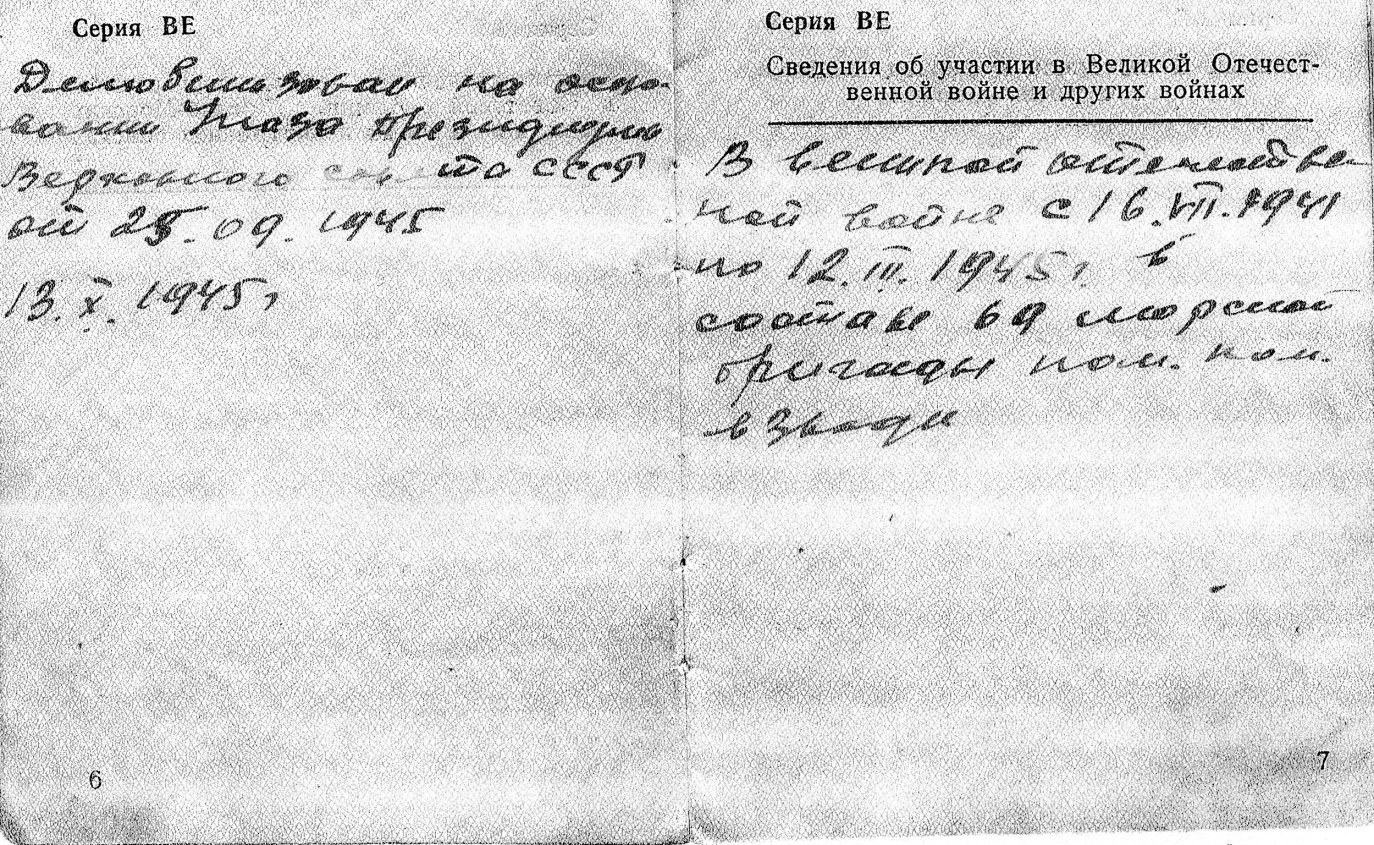 Серия ВЕ
Демобилизован на осно-
вании Указа Президиума
Верховного совета СССР
от 25.09.1945
13.X.1945г
6
Серия ВЕ
Сведения об участии в Великой Отечест-
венной войне и других войнах
В великой отечестве-
ной войне с 16.VII.1941
по 12.III.1945г. в
составе 69 морской
бригады пом. ком.
взвода
7